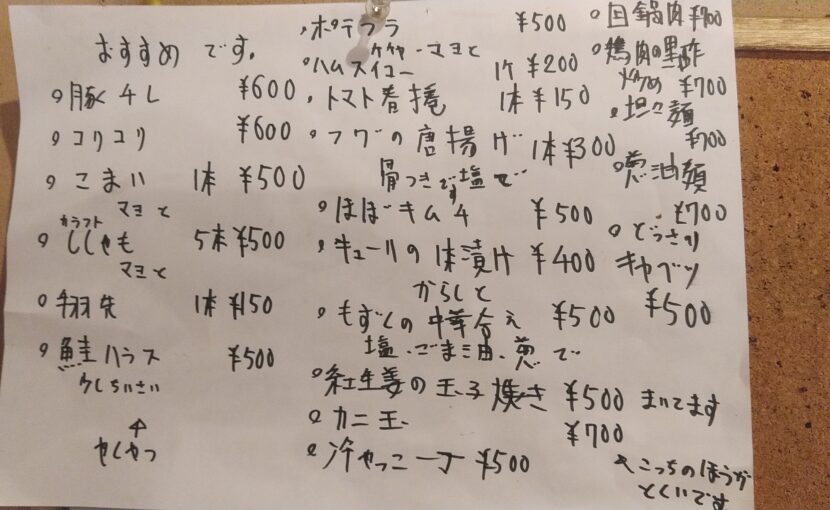 おすすめです。
豚チレ ¥600
コリコリ ¥600
こまい 1本 ¥500
マヨと
カラフト
ししゃも 5本 ¥500
マヨと
手羽先 1本 ¥150
鮭ハラス ¥500
少しちいさい
↑
やくやつ
ポテフラ ¥500
マヨと
ハムスイコー 1ケ ¥200
トマト春捲 1本 ¥150
フグの唐揚げ 1本 ¥300
骨つきです塩で
ほぼキムチ ¥500
キューリの1本漬け ¥400
からしと
もずくの中華合え ¥500
塩、ごま油、葱で
紅生姜の玉子焼き ¥500 まいてます
カニ玉 ¥700
冷やっこ一丁 ¥500
回鍋肉 ¥700
鶏肉の黒酢
炒め ¥700
坦々麺
¥700
葱油麺
¥700
どっさり
キャベツ
¥500
↖こっちのほうが
とくいです